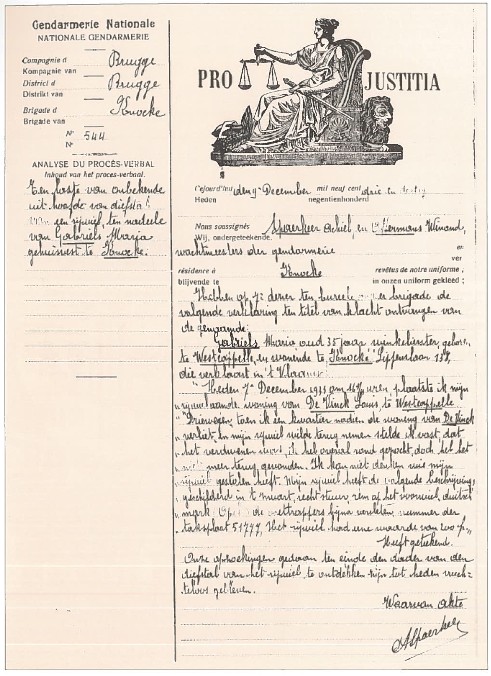 Gendarmerie Nationale
NATIONALE GENDARMERIE
Compagnie d
Kompagnie van Brugge
District d
Distrikt van Brugge
Brigade d
Brigade van Knocke
N°
N° 544
ANALYSE DU PROCÈS-VERBAL
Inhoud van het proces-verbaal.
Ten laste van onbekende
uit hoofde van diefstal
van een rijwiel, ten nadeele
van Gabriels Maria
gehuisvest te Knocke.
PRO JUSTITIA
Cejourd'hui den 7n December mil neuf cent drie en dertig
Heden negentienhonderd
Nous soussignés
Wij, ondergeteekende. Spaerkeer Achiel, en Hermans Winand,
wachtmeesters der gendarmerie
et
er
résidence à Knocke revêtes de notre uniforme,
blijvende te in onzen uniform gekleed;
Hebben op 7n dezer ten bureele onzer brigade de
volgende verklaring ten titel van klacht ontvangen van
de genaamde:
Gabriels Maria oud 35 jaar winkelierster, geboren
te Westcappelle, en wonende te Knocke Lippenslaan 137,
die verklaart in 't Vlaamsch
"Heden 7n December 1933 om uren plaatste ik mijn
rijwiel aan de woning van De Vinck Louis, te Westcappelle
"Driewegen" toen ik een kwartier nadien de woning van De Vinck
verliet, en mijn rijwiel wilde terug nemen stelde ik vast dat
het verdwenen was, ik heb overal rond gezocht, doch heb het
niet meer terug gevonden. Ik kan niet denken wie mijn
rijwiel gestolen heeft. Mijn rijwiel heeft de volgende beschrijving:
geschilderd in 't zwart, recht stuur, rem op het voorwiel,
merk O de voettrappers bijna versleten, nummer der
taksplaat 51777, Het rijwiel had eene waarde van 200 f."
Heeft geteekend.
Onze opzoekingen gedaan ten einde den dader van den
diefstal van het rijwiel te ontdekken zijn tot heden vruch-
teloos gebleven.
Waarvan Akte
ASpaerkeer